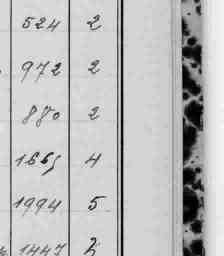 524 2
972 2
880 2
1665 4
1994 5
1447